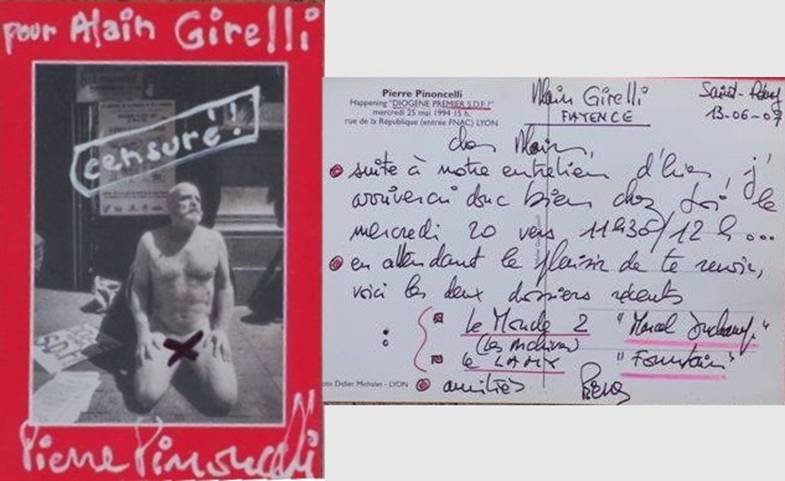 pour Alain Girelli
censuré!!
Pierre Pinoncelli
Pierre Pinoncelli
Happening "DIOGENE PREMIER S.D.F !"
mercredi 25 mai 1994 15 h.
rue de la République (entrée FNAC) LYON
Alain Girelli
FAYENCE
13-06-07
cher Alain,
suite à notre entretien d'hier, j'
arriverai donc bien chez toi le
mercredi 20 vers 11h30/12 h...
en attendant le plaisir de te revoir,
voici les deux dossiers récents
: le Monde 2 "Marcel Duchamp"
(les Archives)
le LAMY "Fountain"
Didier Michalet - LYON
amitiés